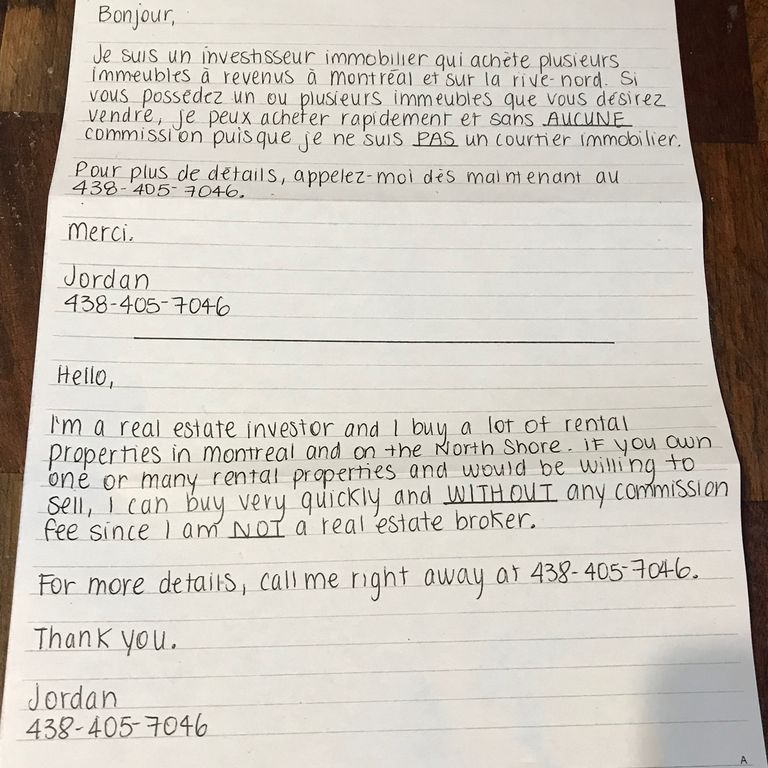 Bonjour,
Je suis un investisseur immobilier qui achète plusieurs
immeubles à revenus à montréal et sur la rive-nord. Si
vous possédez un ou plusieurs immeubles que vous désirez
vendre, je peux acheter rapidement et sans AUCUNE
commission puisque je ne suis PAS un courtier immobilier.
Pour plus de détails, appelez-moi dès maintenant au
438-405-7046.
Merci.
Jordan
438-405-7046
Hello,
I'm a real estate investor and I buy a lot of rental
properties in montreal and on the North Shore. If you own
one or many rental properties and would be willing to
sell, I can buy very quickly and WITHOUT any commission
fee since I am NOT a real estate broker.
For more details, call me right away at 438-405-7046.
Thank you.
Jordan
438-405-7046
A